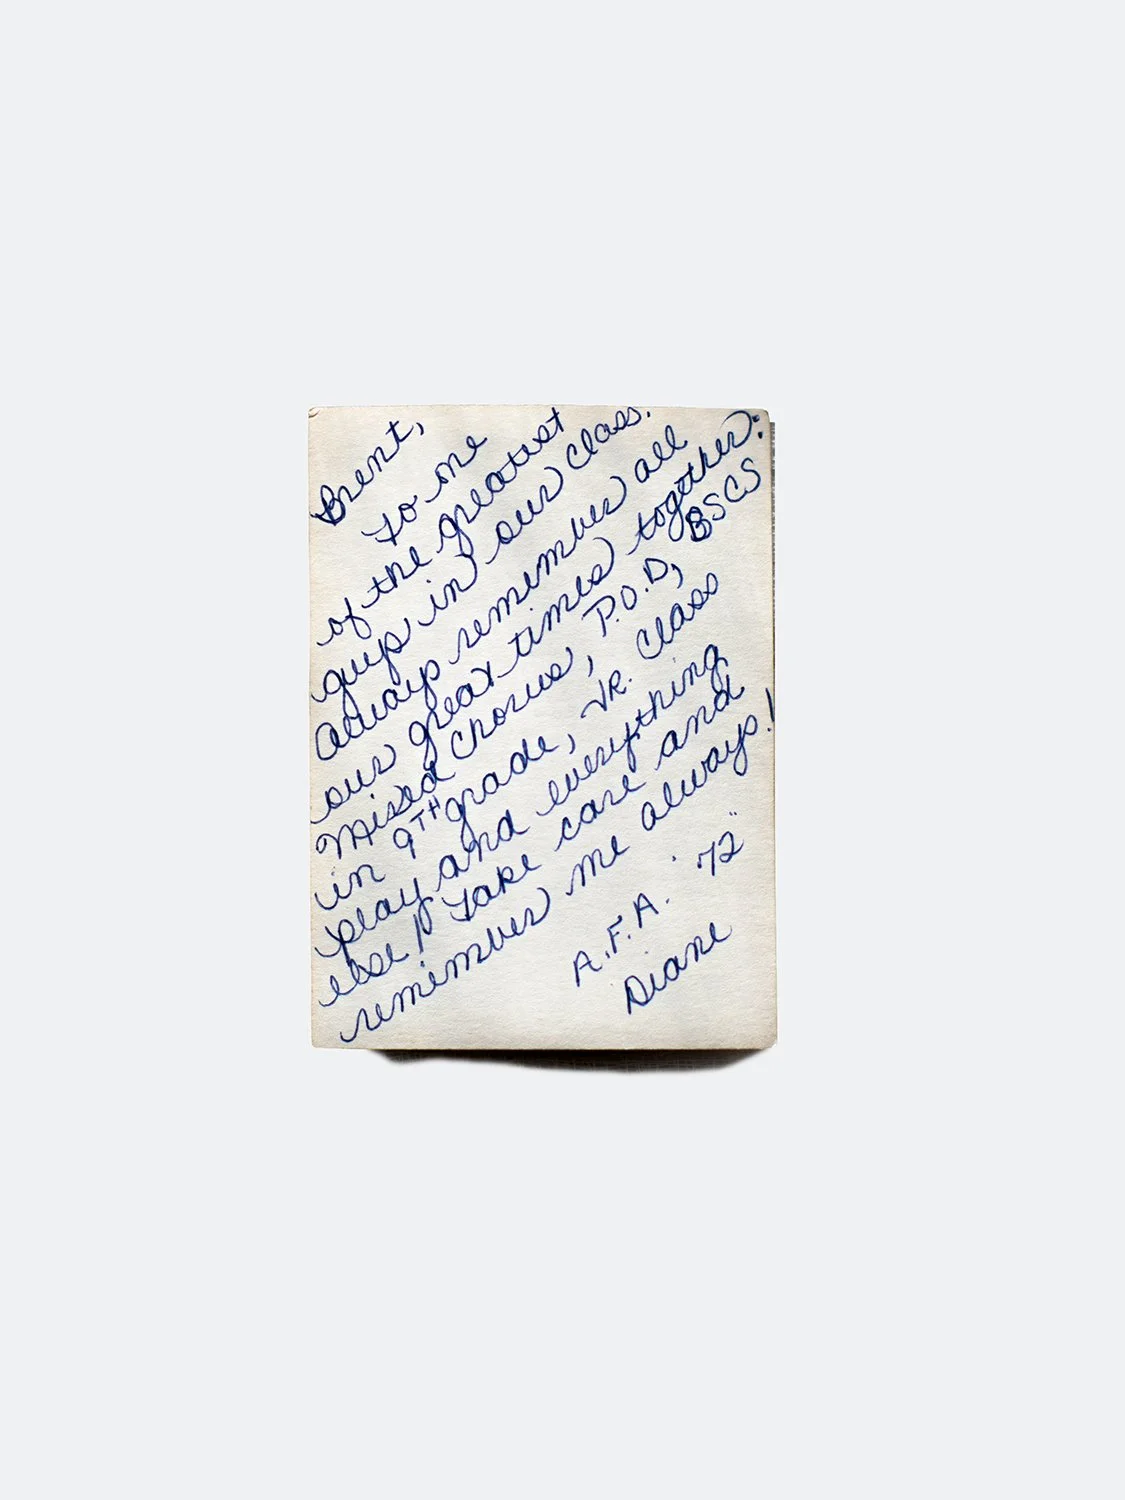 Brent,
To one
of the greatest
guys in our class.
Always remember all
our great times together:
Mixed Chorus, P.O.D, BSCS
in 9TH grade, JR. Class
play and everything
else! Take care and
remember me always!
A.F.A. '72"
Diane